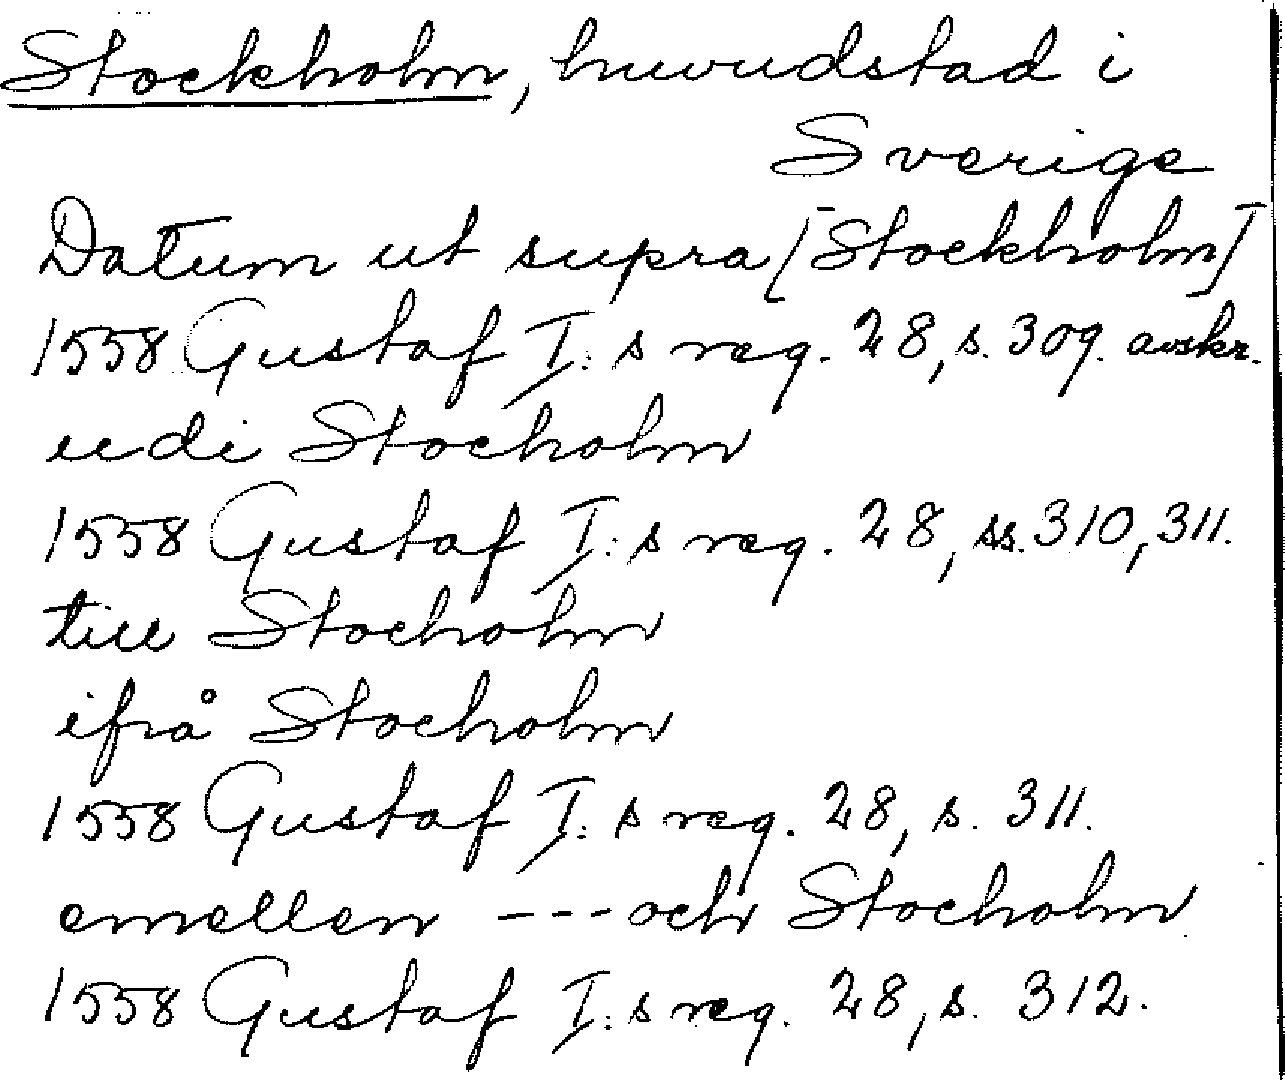 Stockholm, huvudstad i
Sverige
Datum ut supra [Stockholm]
1558 Gustaf I:s reg. 28, s. 309. avskr.
udi Stocholm
1558 Gustaf I:s reg. 28, ss. 310, 311.
till Stocholm
ifrå Stocholm
1558 Gustaf I:s reg. 28, s. 311.
emellen --- och Stocholm
1558 Gustaf I:s reg. 28, s. 312.